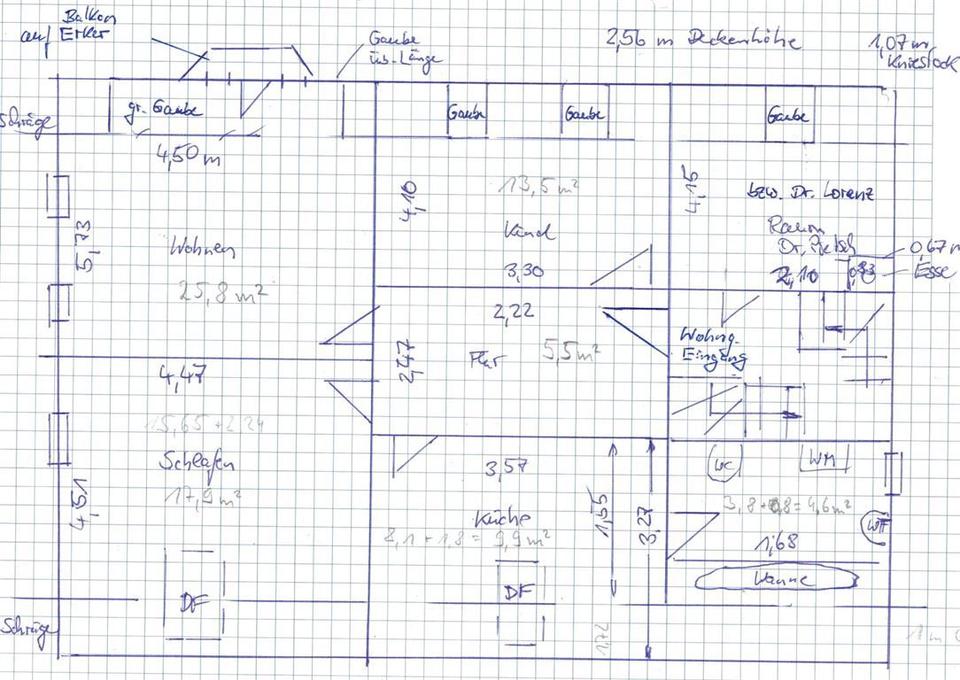 Balkon
auf Erker
Gaube
üb. Länge
2,56 m Deckenhöhe
1,07 m
Kniestock
Schräge
gr. Gaube
Gaube
Gaube
Gaube
4,50 m
13,5 m²
4,10
4,15
bzw. Dr. Lorenz
Raum
5,73
Wohnen
Kind
0,67 m
3,30
2,10
Esse
25,8 m²
2,22
Wohng.
Eingang
2,47
Flur
5,5 m²
4,47
15,65 + 2,24
Schlafen
17,9 m²
4,51
3,57
WC
WM
1,55
3,27
Küche
8,1 + 1,8 = 9,9 m²
3,8 + 0,8 = 4,6 m²
WT
1,68
Wanne
DF
DF
Schräge
1,72
1 m